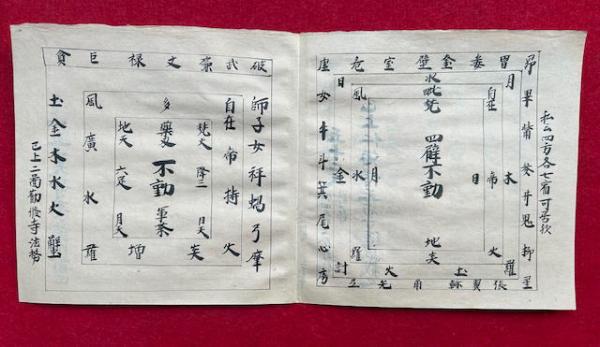 私云四方各七宿可居欤
昴畢觜参井鬼柳星
胃婁奎壁室危虚
女牛斗箕尾心房
張翼軫角亢氐
月木羅
土火計
金日
水
自在帝火
地天
羅水風
日
四臂不動
月
破武廉文禄巨貪
師子女秤蝎弓摩
自在帝持火
多
風廣水羅
増
梵天降三日天
薬叉不動軍荼
地天六足月天
土金木水火
已上二面勧修寺法務